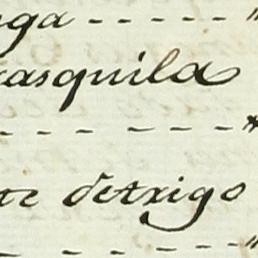 nga - - - - - "
rasquila
- - - - - - - "
te detrigo
- - - - - - "